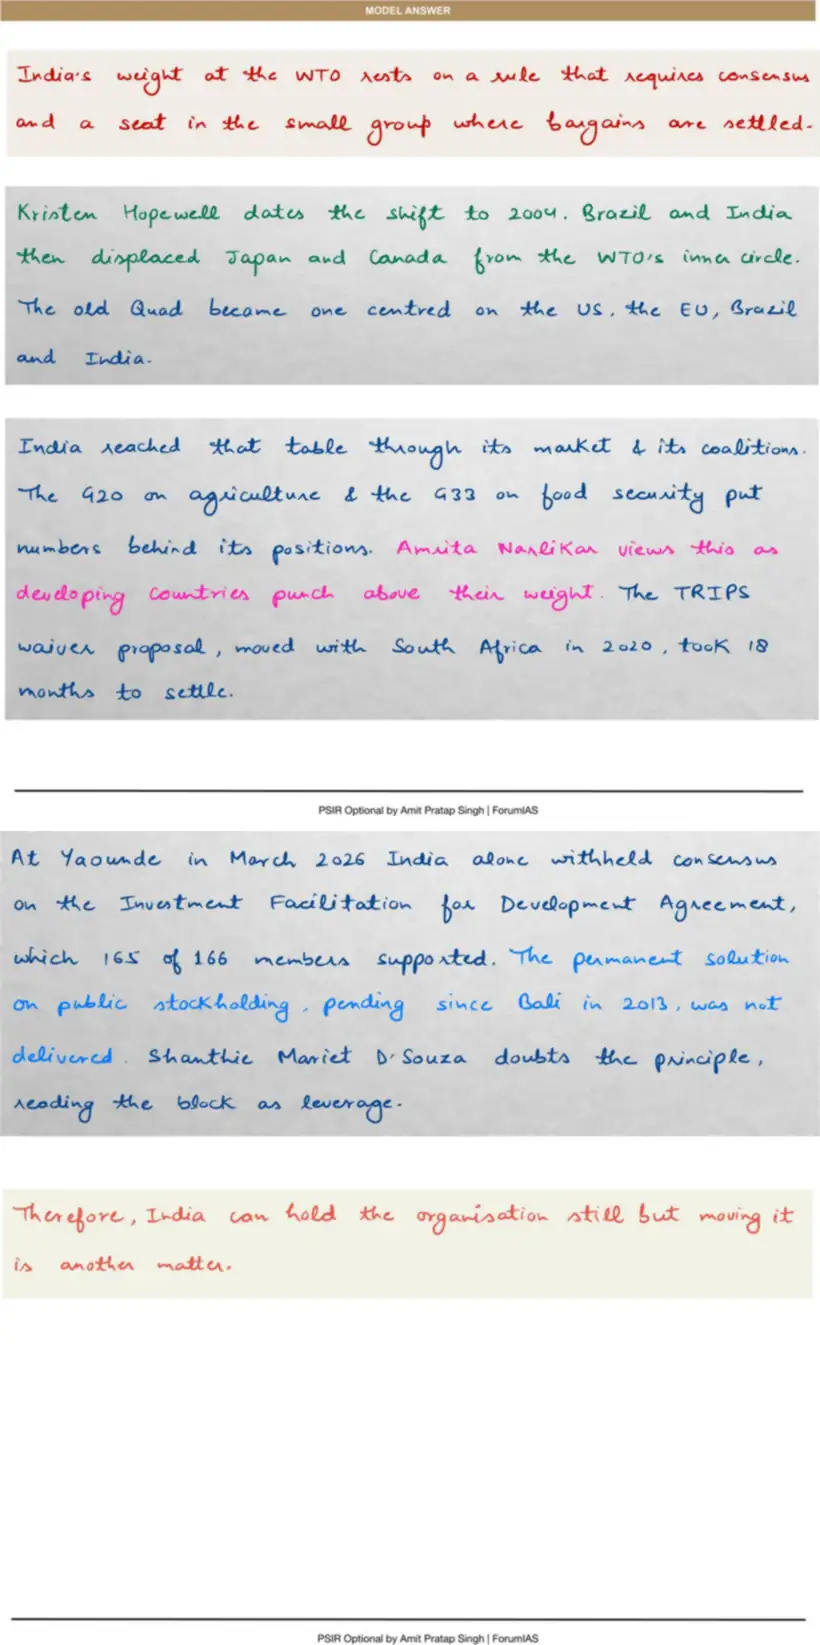 MODEL ANSWER
India's weight at the WTO rests on a rule that requires consensus
and a seat in the small group where bargains are settled.
Kristen Hopewell dates the shift to 2004. Brazil and India
then displaced Japan and Canada from the WTO's inner circle.
The old Quad became one centred on the US, the EU, Brazil
and India.
India reached that table through its market & its coalitions.
The G20 on agriculture & the G33 on food security put
numbers behind its positions. Amrita Narlikar views this as
developing countries punch above their weight. The TRIPS
waiver proposal, moved with South Africa in 2020, took 18
months to settle.
PSIR Optional by Amit Pratap Singh | ForumIAS
At Yaounde in March 2026 India alone withheld consensus
on the Investment Facilitation for Development Agreement,
which 165 of 166 members supported. The permanent solution
on public stockholding, pending since Bali in 2013, was not
delivered. Shanthie Mariet D'Souza doubts the principle,
reading the block as leverage.
Therefore, India can hold the organisation still but moving it
is another matter.
PSIR Optional by Amit Pratap Singh | ForumIAS